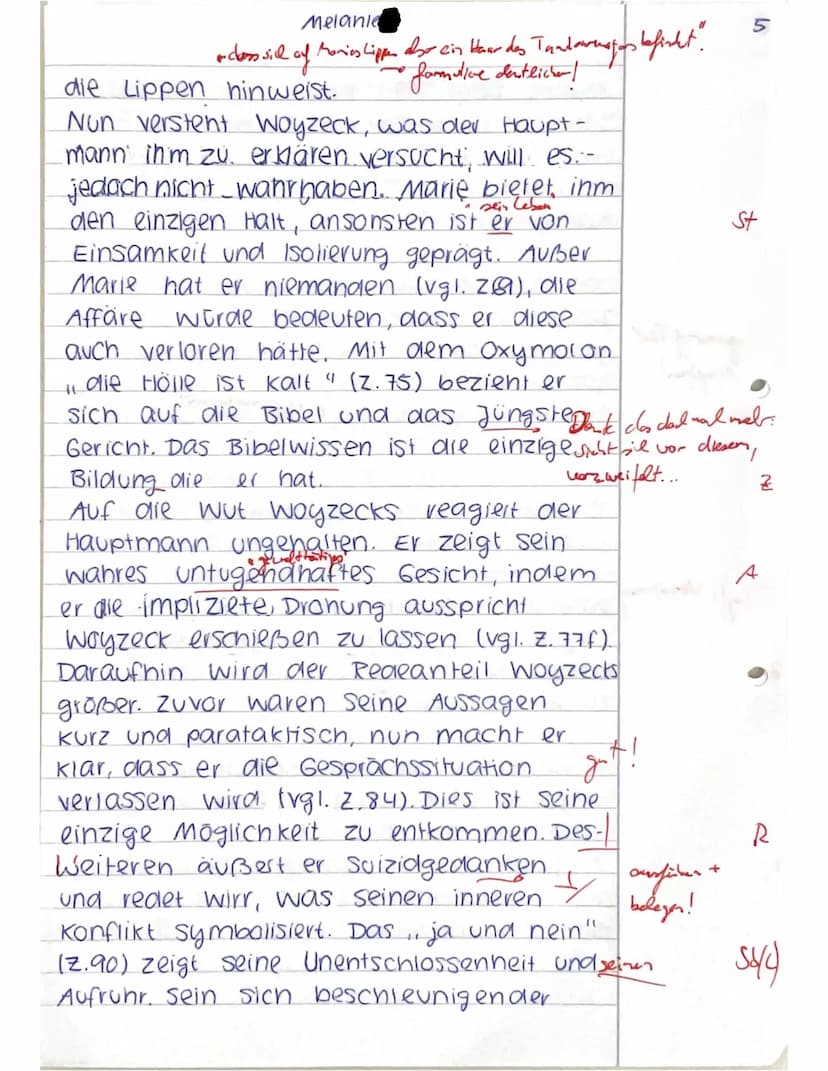 Melanie
5
"dass sich auf Maries Lippen aber ein Haar des Tambourmajors befindet".
→ formuliere deutlicher!
die Lippen hinweist.
Nun versteht Woyzeck, was der Haupt-
mann ihm zu erklären versucht, will es
jedoch nicht wahrhaben. Marie bietet ihm
sein Leben
den einzigen Halt, ansonsten ist er von
St
Einsamkeit und Isolierung geprägt. Außer
Marie hat er niemanden (vgl. Z. ), die
Affäre würde bedeuten, dass er diese
auch verloren hätte. Mit dem Oxymoron
„die Hölle ist kalt" (Z.75) bezieht er
sich auf die Bibel und das Jüngste
Gericht. Das Bibelwissen ist die einzige
Bildung die er hat.
Denk das doch mal mehr:
sieht sie vor diesem,
verzweifelt...
Z
Auf die Wut Woyzecks reagiert der
Hauptmann ungehalten. Er zeigt sein
gewalttätiges
wahres untugendhaftes Gesicht, indem
A
er die impliziete Drohung ausspricht
Woyzeck erschießen zu lassen (vgl. Z.77f).
Daraufhin wird der Redeanteil Woyzecks
größer. Zuvor waren seine Aussagen
kurz und parataktisch, nun macht er
klar, dass er die Gesprächssituation
gut!
verlassen wird (vgl. Z.84). Dies ist seine
einzige Möglichkeit zu entkommen. Des-
R
Weiteren äußert er Suizidgedanken
und redet wirr, was seinen inneren
ausführen +
belegen!
Konflikt symbolisiert. Das „ja und nein"
(Z.90) zeigt seine Unentschlossenheit und seinen
Sb(4)
Aufruhr. Sein sich beschleunigender